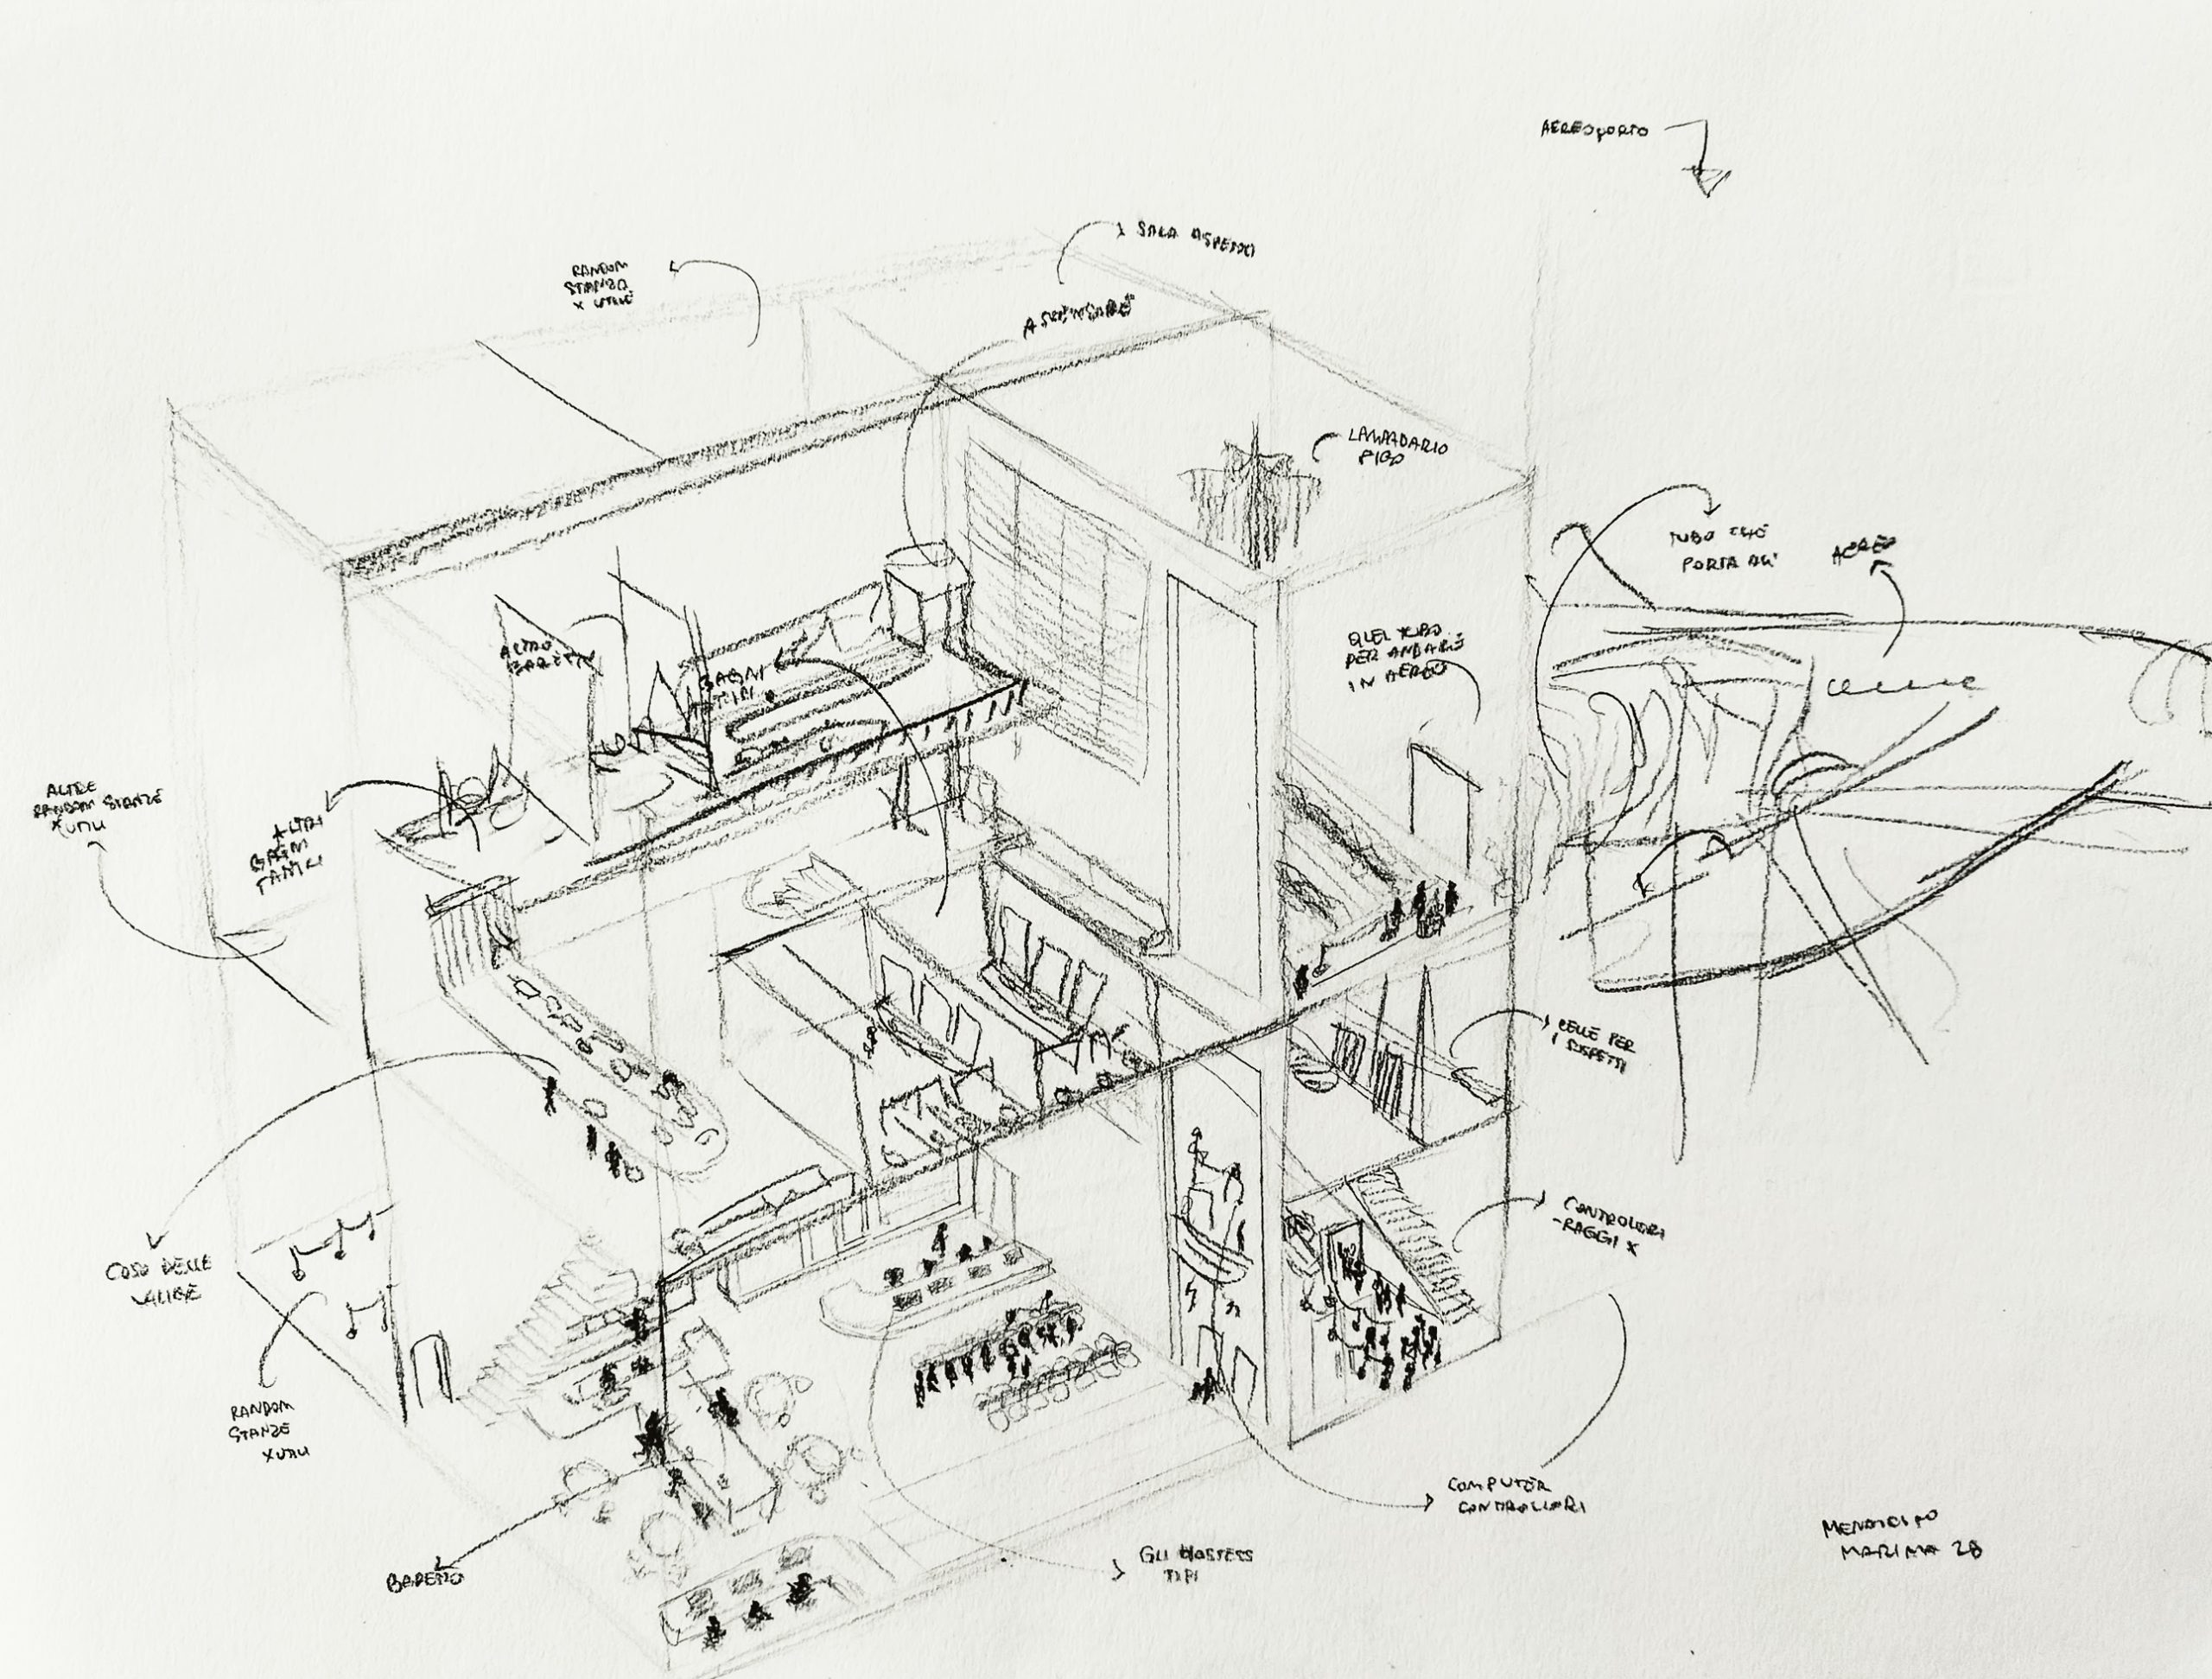 AEREOPORTO
SALA ASPETTO
RANDOM
STANZA
X UTILE
ASCENSORE
LAMPADARIO
FIGO
TUBO CHE
PORTA ALL'
AEREO
ALTRO
BARETTO
BAGNI
TIPI
QUEL TUBO
PER ANDARE
IN AEREO
ALTRE
RANDOM STANZE
X UTILI
ALTRI
BAGNI
CELLE PER
I SOSPETTI
CONTROLLORI
-RAGGI X
COSO DELLE
VALIGE
RANDOM
STANZE
X UTILI
COMPUTER
CONTROLLORI
GLI HOSTESS
TIPI
BARETTO
28